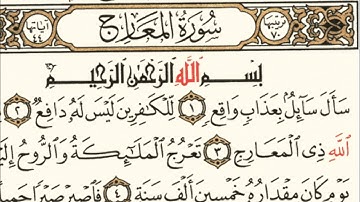 ترتيبها ٧٠ سُورَةُ الْمَعَارِجِ آياتها ٤٤
بِسْمِ اللَّهِ الرَّحْمَٰنِ الرَّحِيمِ
سَأَلَ سَآئِلٌۢ بِعَذَابٍ وَاقِعٍ ١ لِّلْكَٰفِرِينَ لَيْسَ لَهُۥ دَافِعٌ ٢ مِّنَ
اللَّهِ ذِى الْمَعَارِجِ ٣ تَعْرُجُ الْمَلَٰٓئِكَةُ وَالرُّوحُ
يَوْمٍ كَانَ مِقْدَارُهُۥ خَمْسِينَ أَلْفَ سَنَةٍ ٤ فَاصْبِرْ صَبْرًا